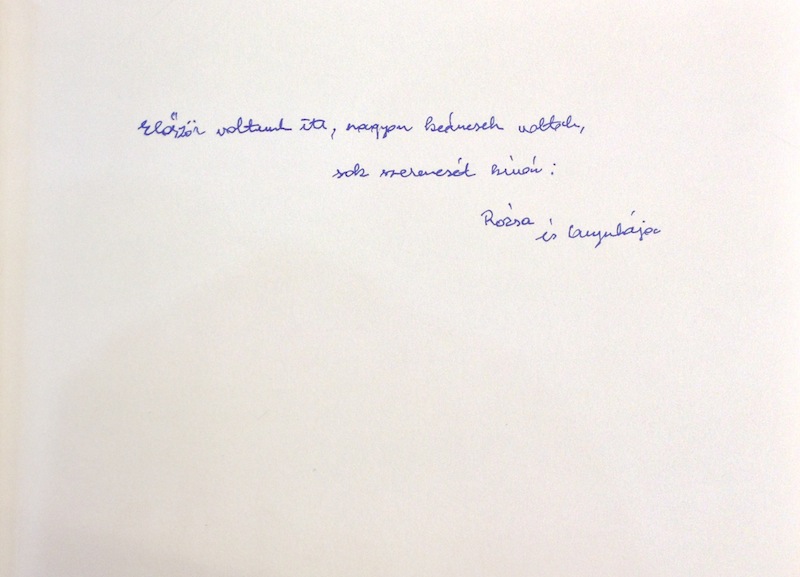 Először voltunk itt, nagyon kedvesek voltak,
sok szerencsét kíván:
Rózsa
és anyukája